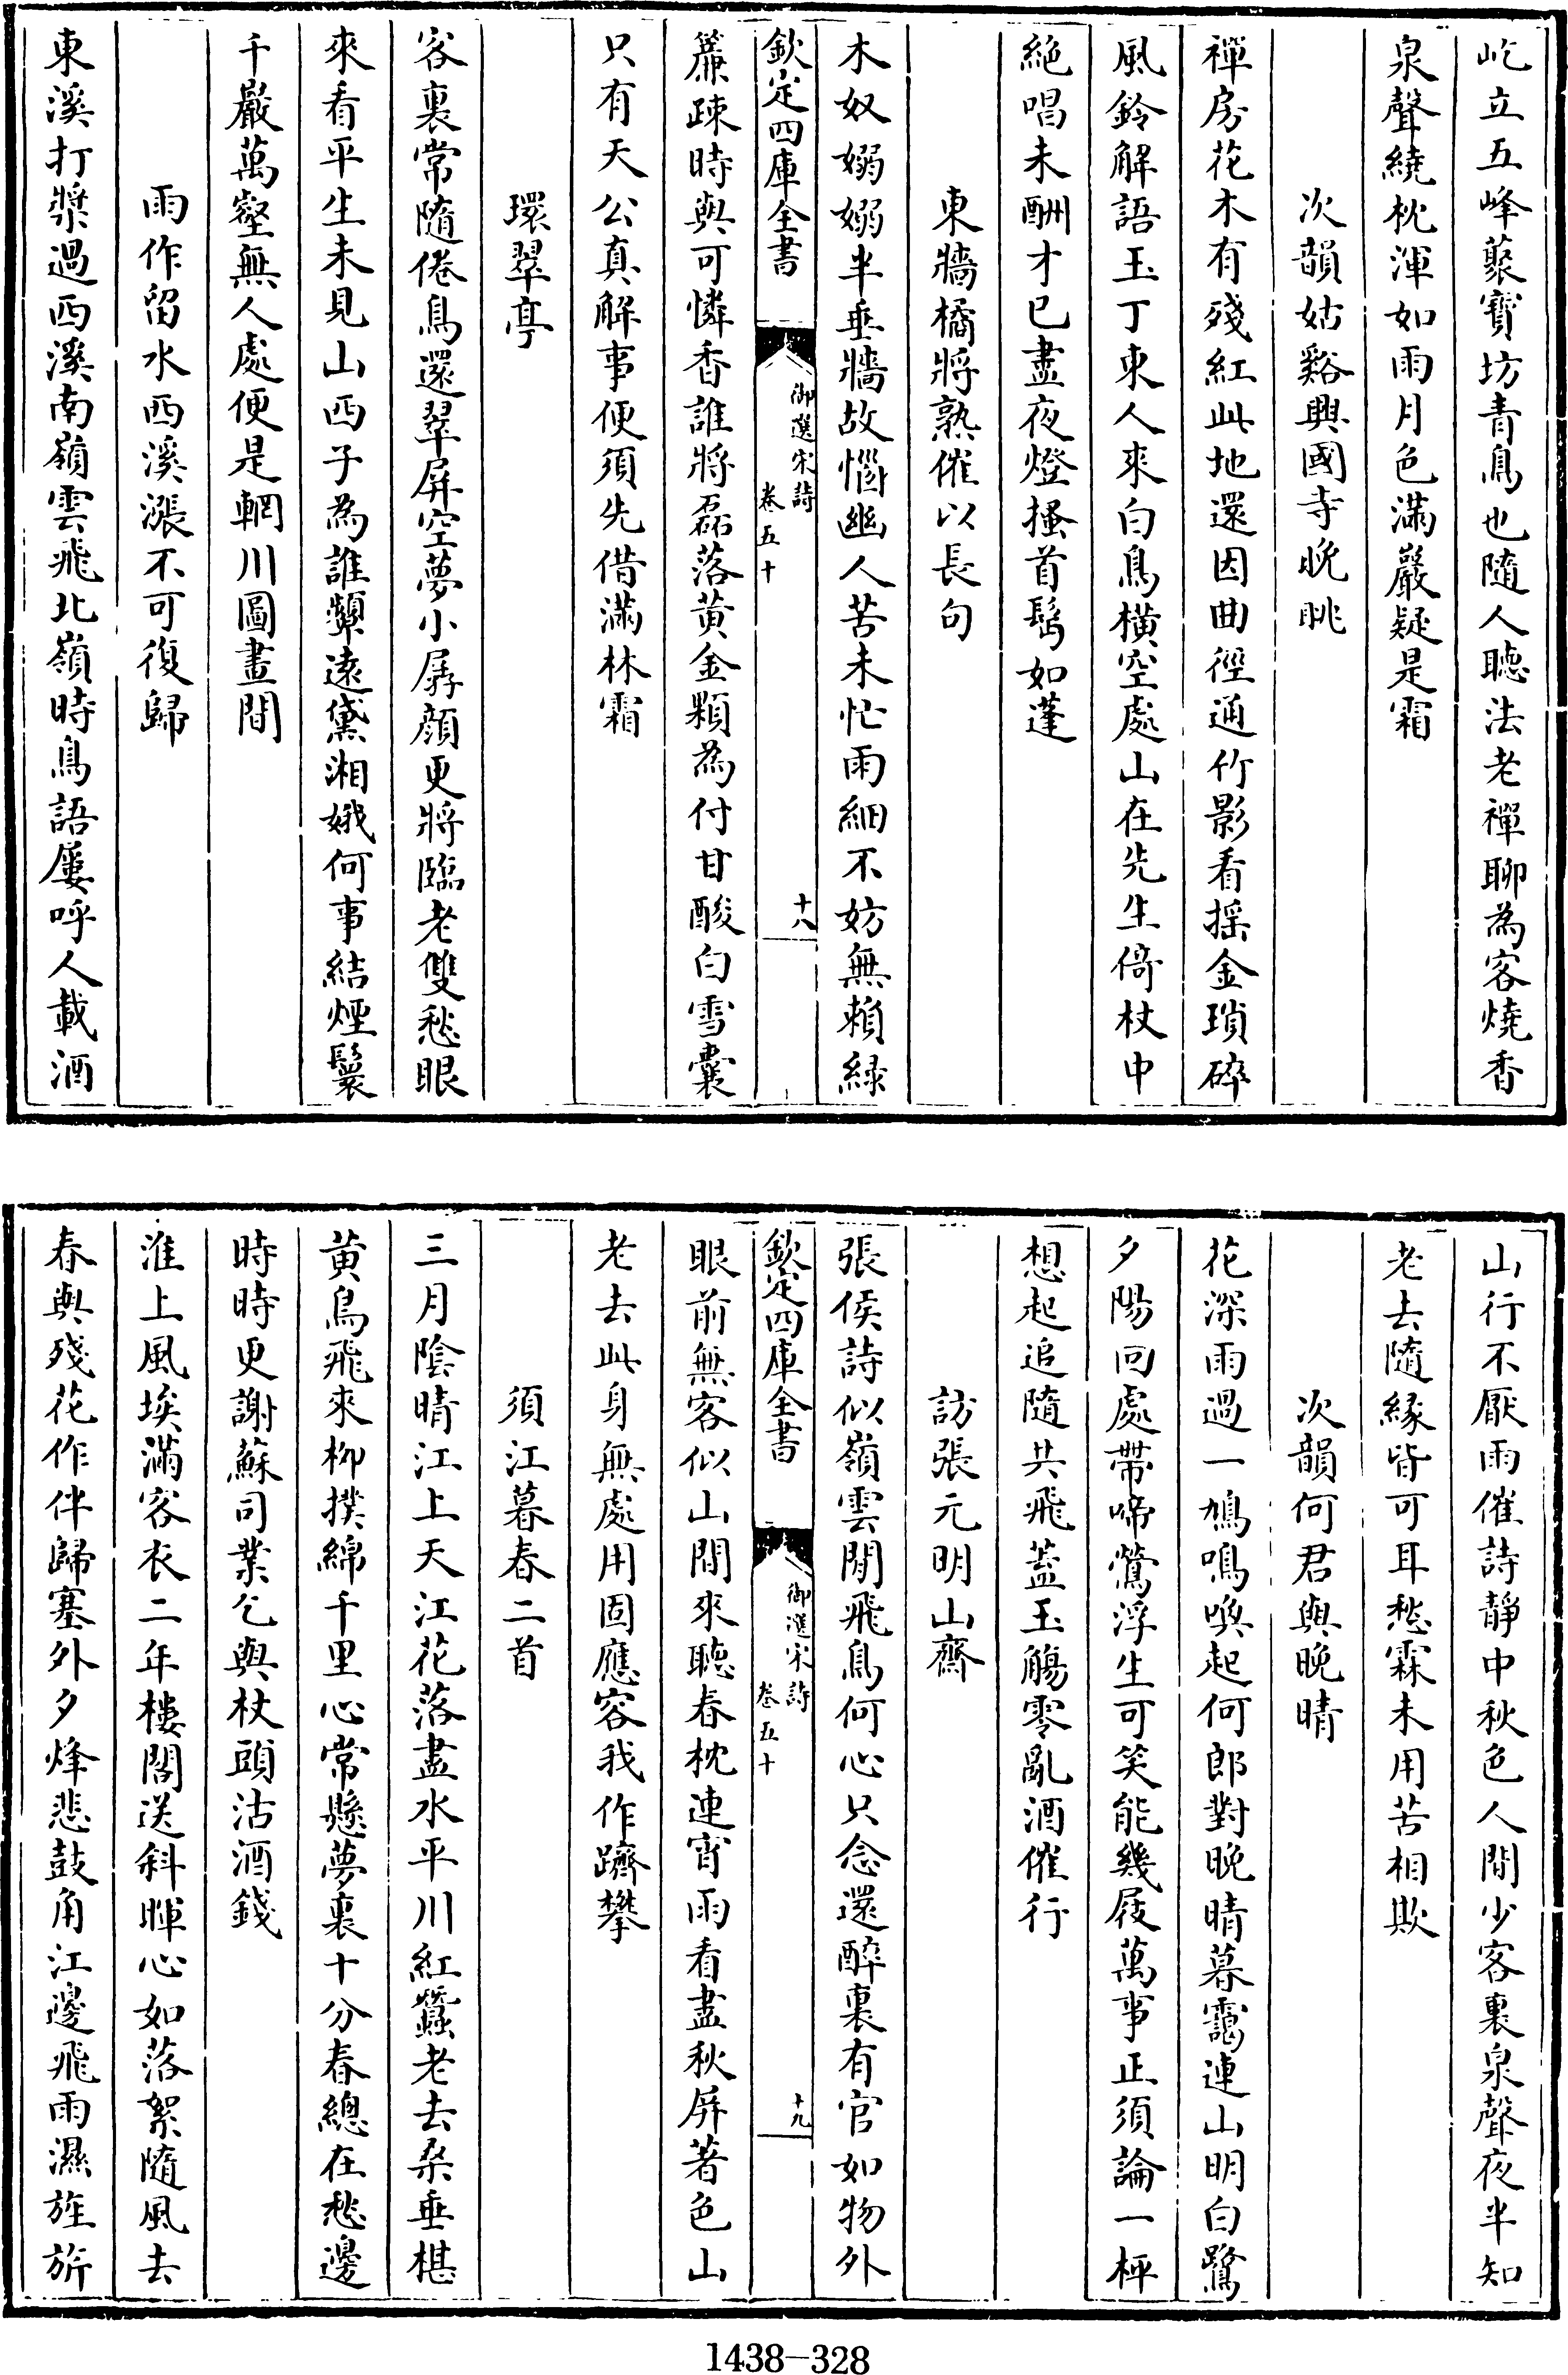 屹立五峰藂寳坊青鳥也隨人聽法老禪聊為客燒香
泉聲繞枕渾如雨月色滿巖疑是霜
次韻姑谿興國寺晚眺
禪房花木有殘紅此地還因曲徑通竹影看揺金瑣碎
風鈴解語玉丁東人來白鳥横空處山在先生倚杖中
絶唱未酬才已盡夜燈搔首髩如蓬
東牆橘將熟催以長句
木奴嫋嫋半垂牆故惱幽人苦未忙雨細不妨無賴緑
欽定四庫全書
御選宋詩
卷五十
十八
簾疎時與可憐香誰將磊落黄金顆為付甘酸白雪囊
只有天公真解事便須先借滿林霜
環翠亭
客裏常隨倦鳥還翠屏空夢小孱顔更將臨老雙愁眼
來看平生未見山西子為誰顰遠黛湘娥何事結煙鬟
千巖萬壑無人處便是輞川圖畫間
雨作留水西溪漲不可復歸
東溪打槳過西溪南嶺雲飛北嶺時鳥語屢呼人載酒
山行不厭雨催詩靜中秋色人間少客裏泉聲夜半知
老去隨緣皆可耳愁霖未用苦相欺
次韻何君與晚晴
花深雨過一鳩鳴喚起何郎對晚晴暮靄連山明白鷺
夕陽回處帶啼鶯浮生可笑能幾屐萬事正須論一枰
想起追隨共飛葢玉觴零亂酒催行
訪張元明山齋
張侯詩似嶺雲閒飛鳥何心只念還醉裏有官如物外
欽定四庫全書
御選宋詩
卷五十
十九
眼前無客似山間來聽春枕連宵雨看盡秋屏著色山
老去此身無處用固應容我作躋攀
須江暮春二首
三月陰晴江上天江花落盡水平川紅蠶老去桑垂椹
黄鳥飛來柳撲綿千里心常懸夢裏十分春總在愁邊
時時更謝蘇司業乞與杖頭沽酒錢
淮上風埃滿客衣二年樓閣送斜暉心如落絮隨風去
春與殘花作伴歸塞外夕烽悲鼓角江邊飛雨濕旌旂
1438-328